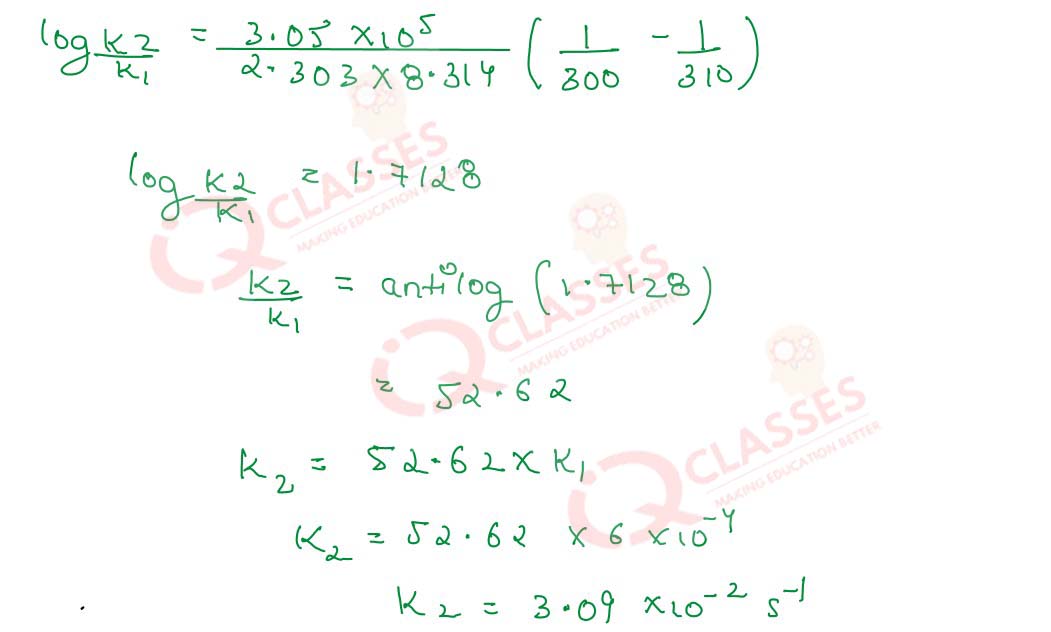 log K2/K1 = 3.05 × 10^5 / 2.303 × 8.314 ( 1/300 - 1/310 )
log K2/K1 = 1.7128
K2/K1 = antilog (1.7128)
= 52.62
K2 = 52.62 × K1
K2 = 52.62 × 6 × 10^-4
K2 = 3.09 × 10^-2 s^-1
iQ CLASSES
MAKING EDUCATION BETTER
iQ CLASSES
MAKING EDUCATION BETTER
iQ CLASSES
MAKING EDUCATION BETTER